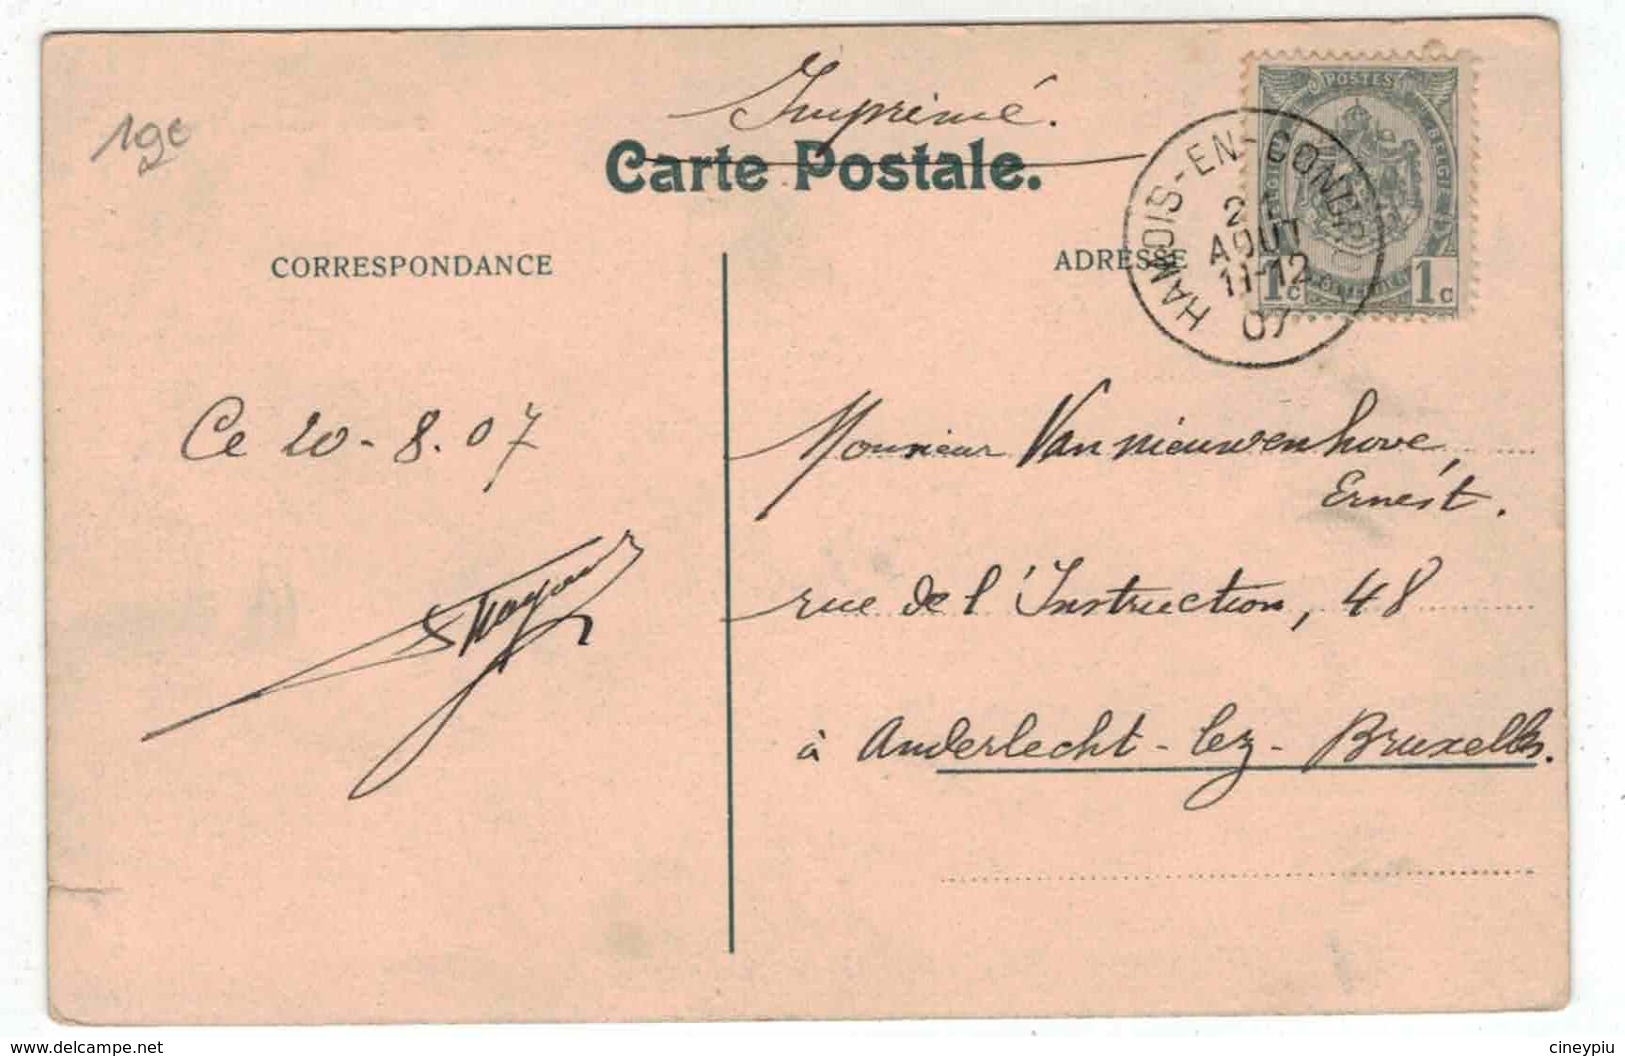 19e
Imprimé.
Carte Postale.
POSTES
1c 1c
HAMOIS-EN-CONDROZ
21
AOUT
11-12
07
CORRESPONDANCE
ADRESSE
Ce 20-8.07
Monsieur Van nieuwenhove
Ernest.
rue de l'Instruction, 48
à Anderlecht-lez-Bruxelles.
www.delcampe.net
cineypiu